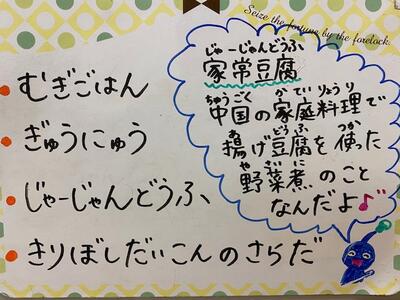 Seize the fortune by the forelock.
むぎごはん
ぎゅうにゅう
じゃーじゃんどうふ、
きりぼしだいこんのさらだ
じゃーじゃんどうふ
家常豆腐
ちゅうごく かていりょうり
中国の家庭料理で
あ どうふ つか
揚げ豆腐を使った
やさいに
野菜煮のこと
なんだよ♪